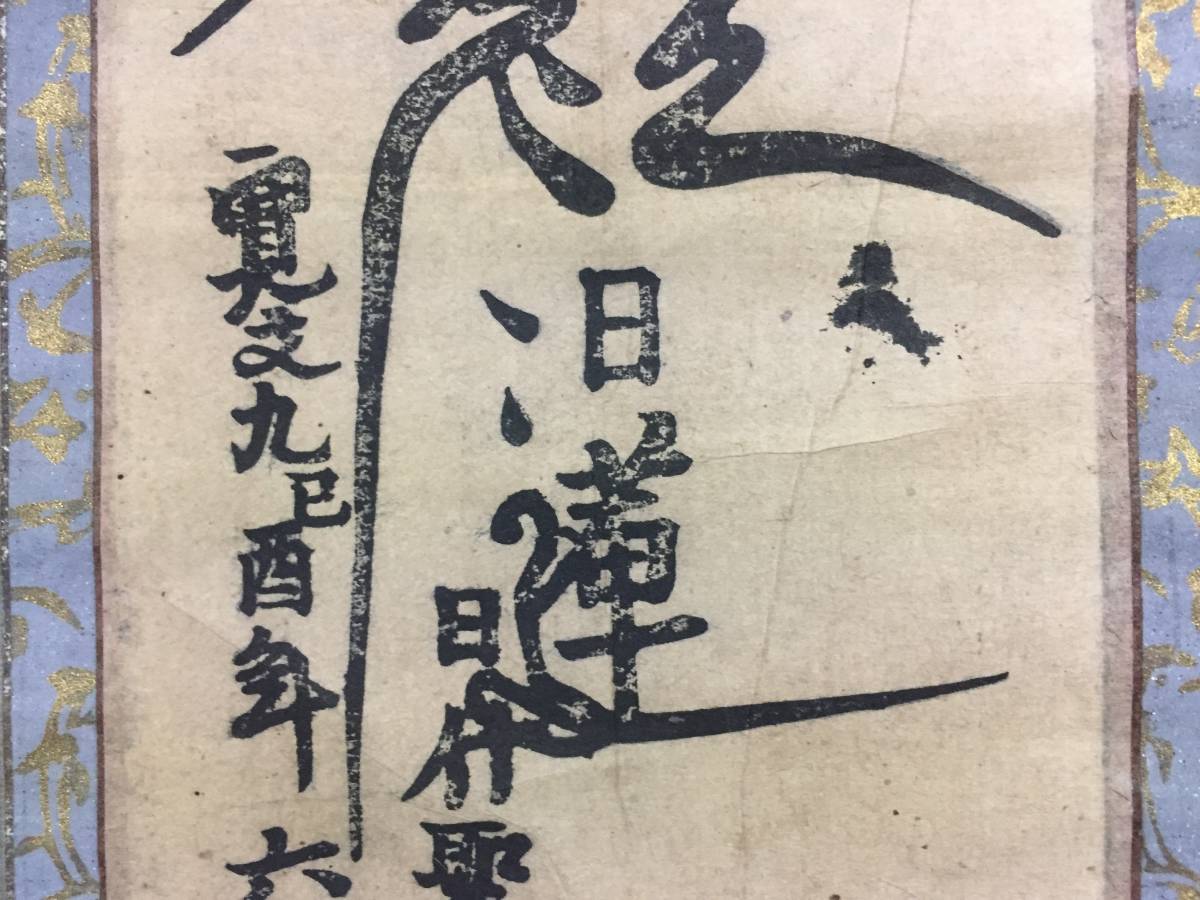 日蓮
日 聖
寛文九己酉年六